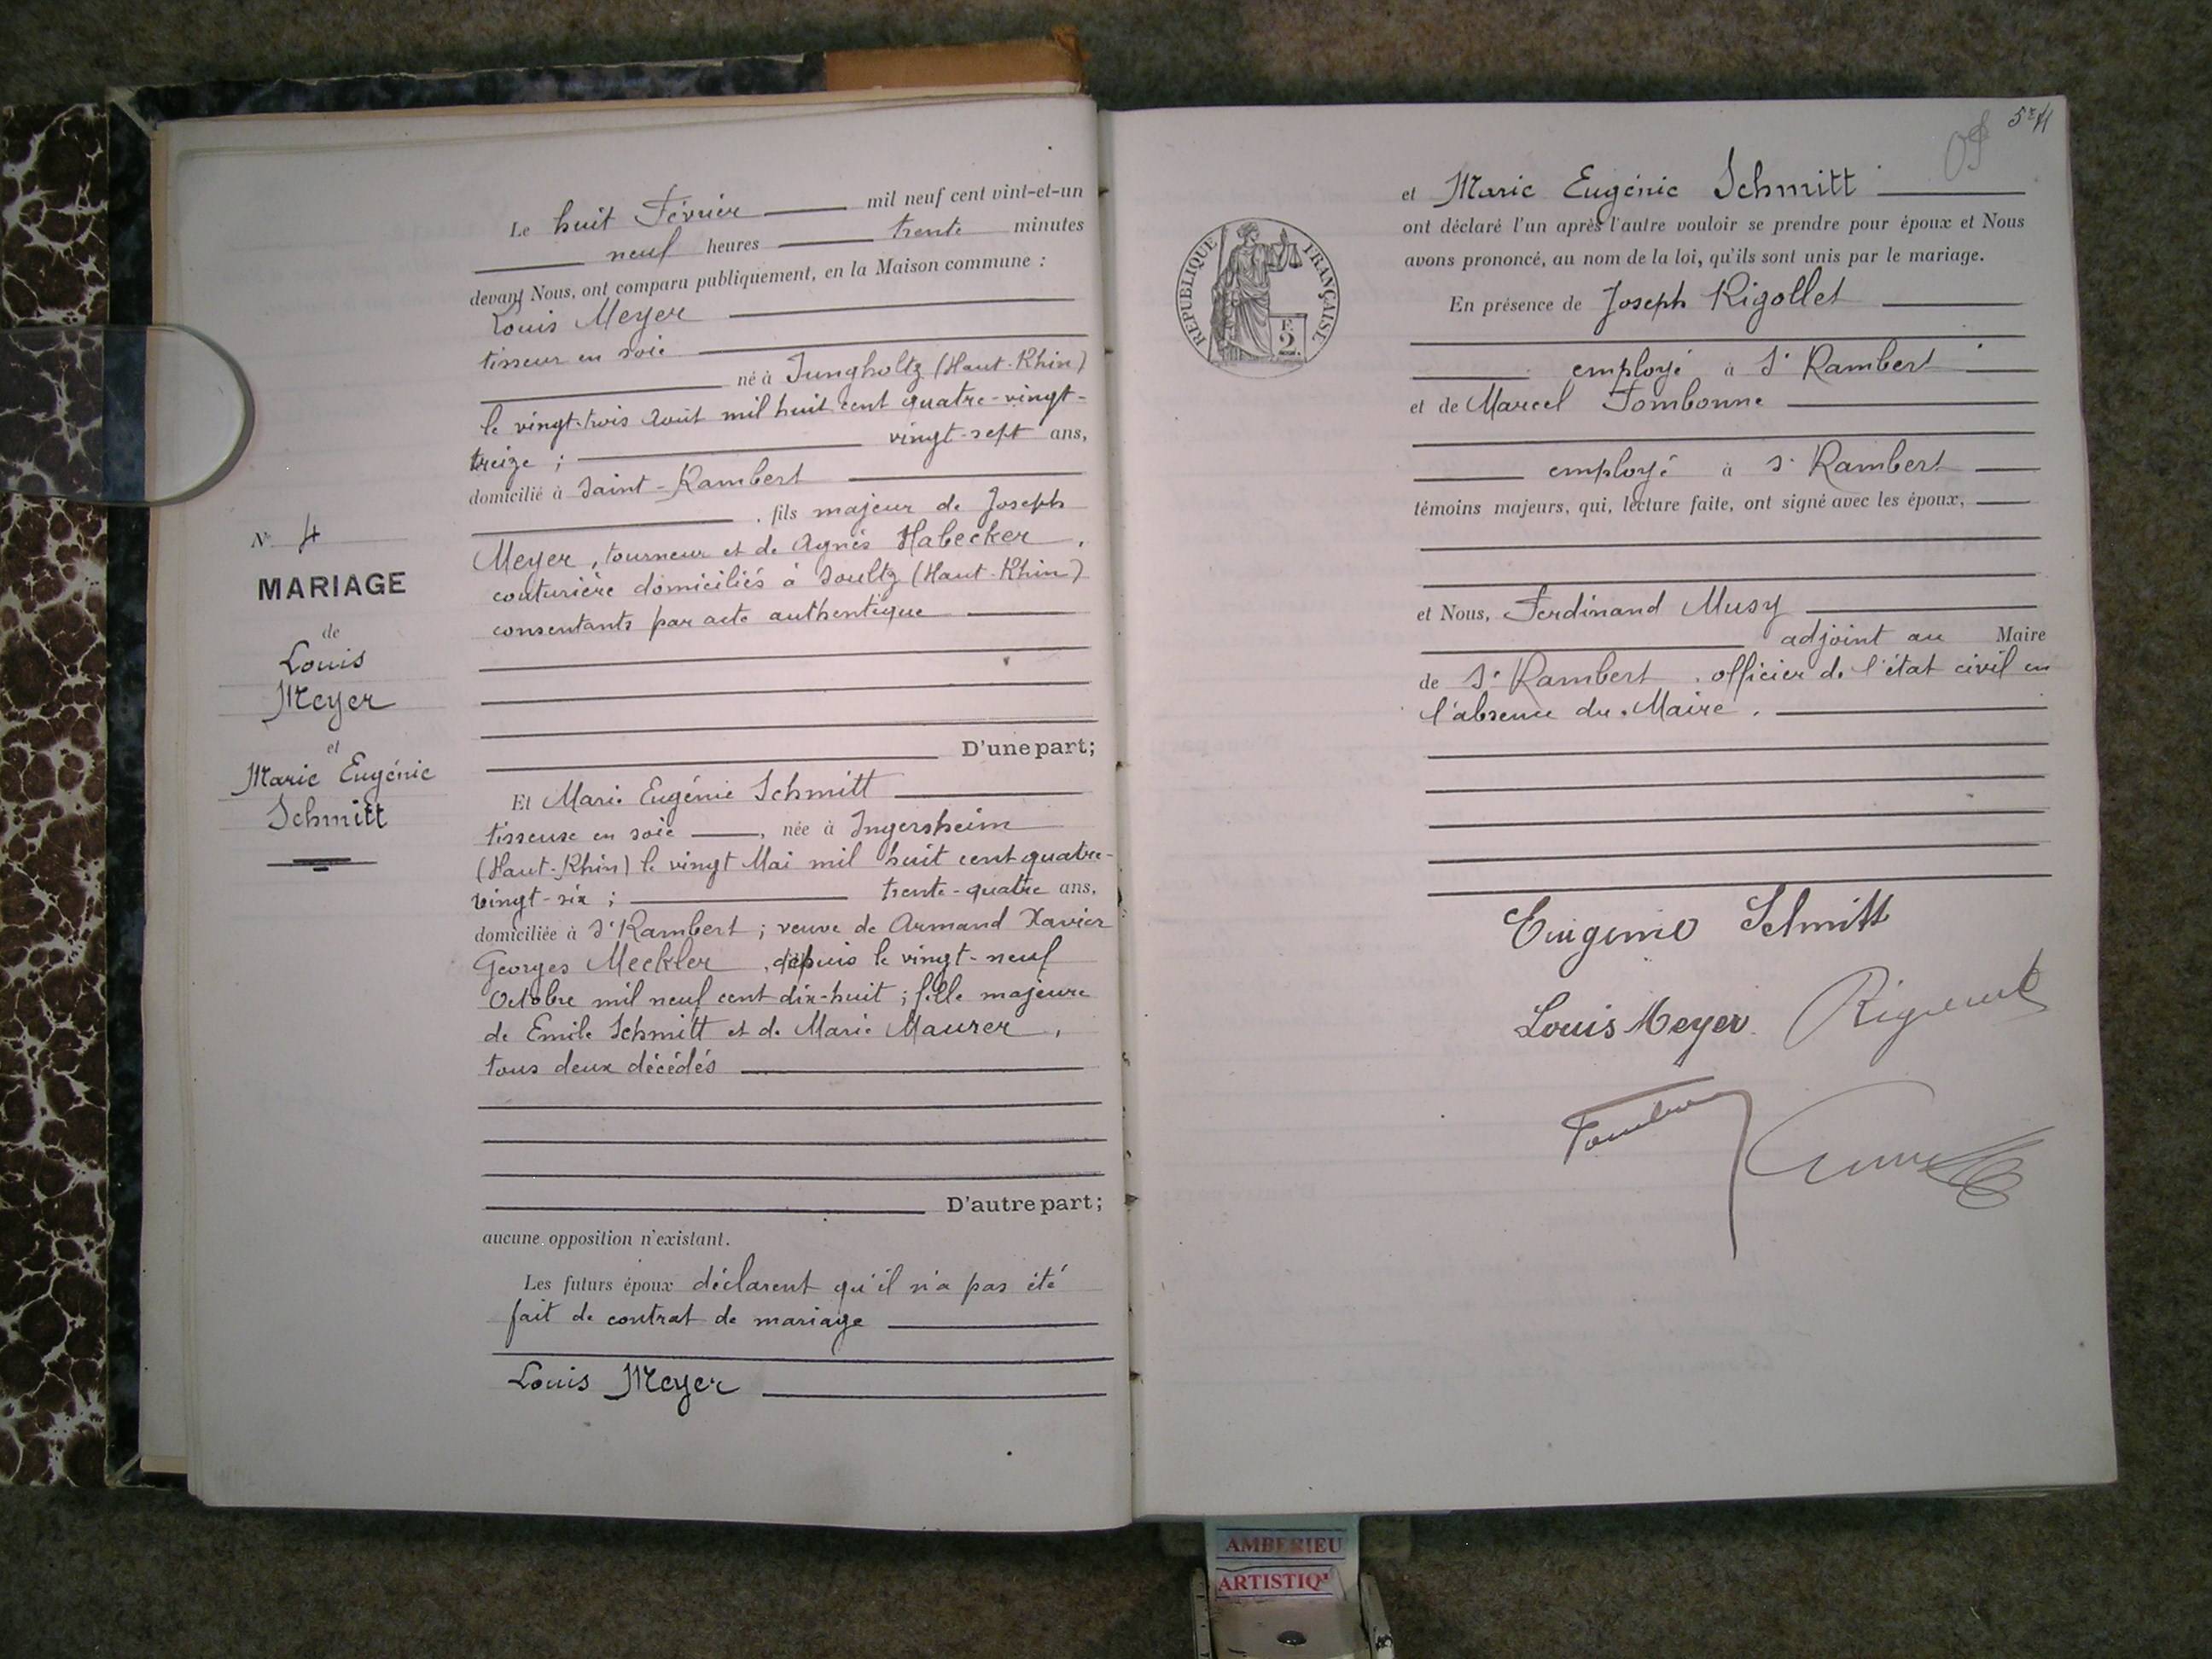 Le huit Février mil neuf cent vint-et-un
neuf heures trente minutes
devant Nous, ont comparu publiquement, en la Maison commune :
Louis Meyer
tisseur en soie
né à Jungholtz (Haut-Rhin)
le vingt-trois Août mil huit cent quatre-vingt-
treize ; vingt-sept ans,
domicilié à Saint-Rambert
, fils majeur de Joseph
Meyer, tourneur et de Agnès Habecker,
couturière domiciliés à Soultz (Haut-Rhin)
consentants par acte authentique
D'une part;
Et Marie Eugénie Schmitt
tisseuse en soie, née à Ingersheim
(Haut-Rhin) le vingt Mai mil huit cent quatre-
vingt-six ; trente-quatre ans,
domiciliée à St Rambert ; veuve de Armand Xavier
Georges Meckler, depuis le vingt-neuf
Octobre mil neuf cent dix-huit ; fille majeure
de Emile Schmitt et de Marie Maurer,
tous deux décédés
D'autre part;
aucune opposition n'existant.
Les futurs époux déclarent qu'il n'a pas été
fait de contrat de mariage
Louis Meyer
N° 4
MARIAGE
de
Louis
Meyer
et
Marie Eugénie
Schmitt
et Marie Eugénie Schmitt
ont déclaré l'un après l'autre vouloir se prendre pour époux et Nous
avons prononcé, au nom de la loi, qu'ils sont unis par le mariage.
En présence de Joseph Rigollet
employé à St Rambert
et de Marcel Tombonne
employé à St Rambert
témoins majeurs, qui, lecture faite, ont signé avec les époux,
et Nous, Ferdinand Musy
adjoint au Maire
de St Rambert, officier de l'état civil en
l'absence du Maire.
Eugenie Schmitt
Louis Meyer
REPUBLIQUE FRANÇAISE
F.
2
AMBERIEU
ARTISTIQ